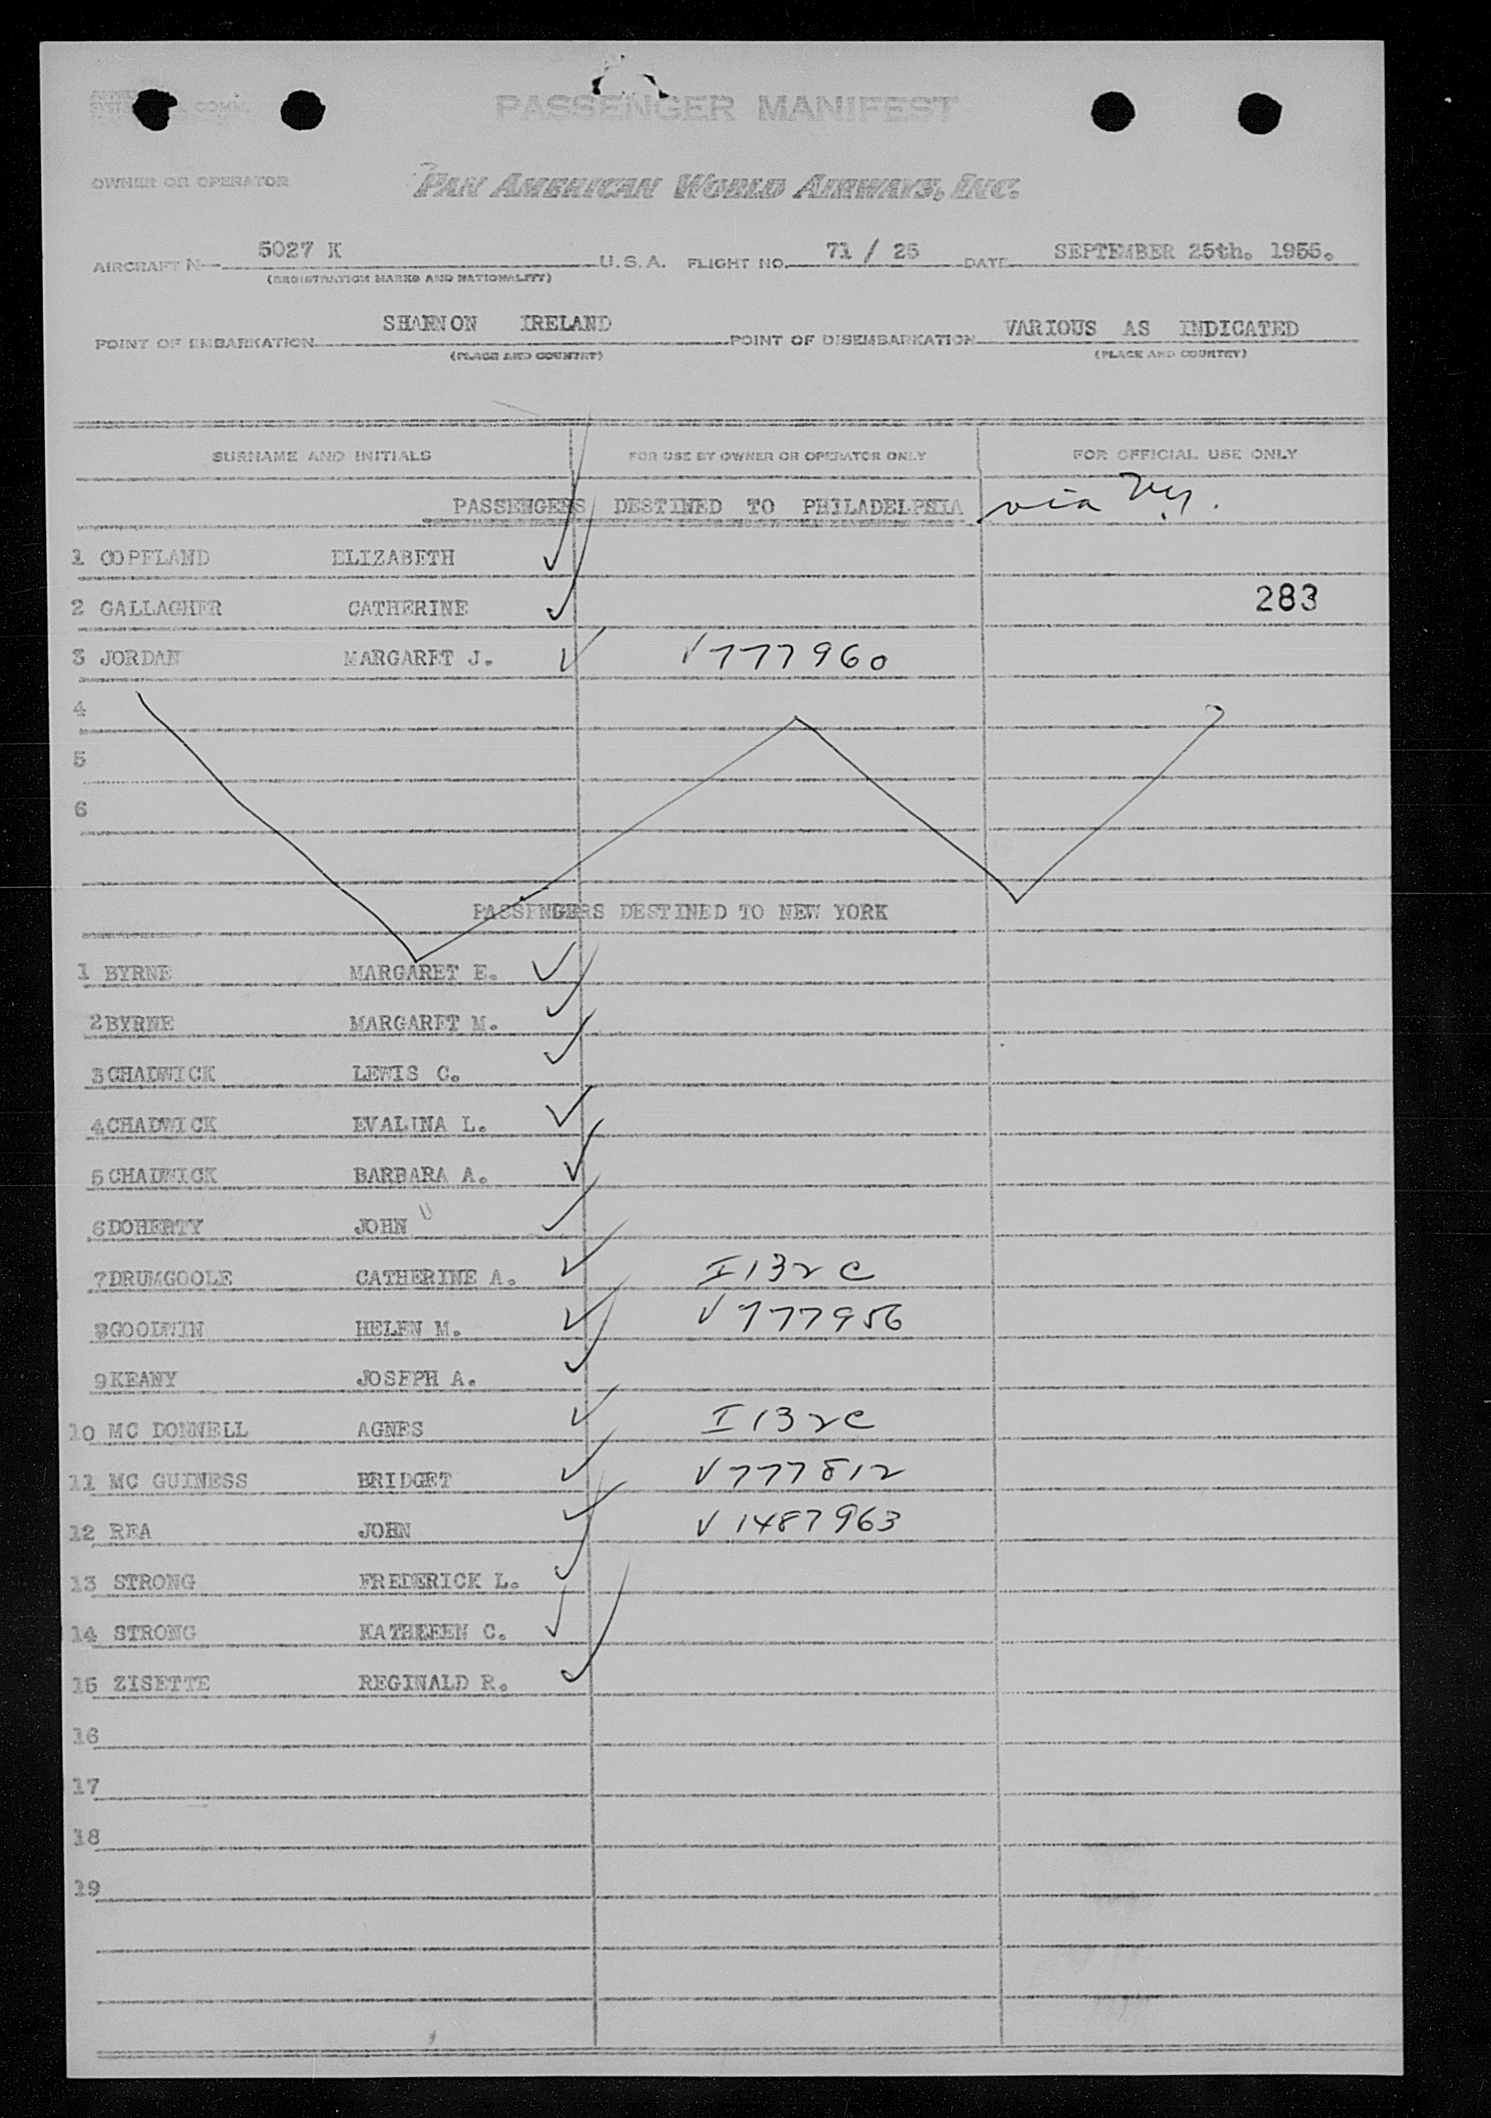 PASSENGER MANIFEST
OWNER OR OPERATOR
PAN AMERICAN WORLD AIRWAYS, INC.
AIRCRAFT N 5027 K U.S.A. FLIGHT NO. 71 / 25 DATE SEPTEMBER 25th. 1955.
(REGISTRATION MARKS AND NATIONALITY)
POINT OF EMBARKATION SHANNON IRELAND POINT OF DISEMBARKATION VARIOUS AS INDICATED
(PLACE AND COUNTRY) (PLACE AND COUNTRY)
SURNAME AND INITIALS FOR USE BY OWNER OR OPERATOR ONLY FOR OFFICIAL USE ONLY
PASSENGERS DESTINED TO PHILADELPHIA via NY.
1 COPELAND ELIZABETH
2 GALLAGHER CATHERINE 283
3 JORDAN MARGARET J. V777960
4
5
6
PASSENGERS DESTINED TO NEW YORK
1 BYRNE MARGARET E.
2 BYRNE MARGARET M.
3 CHADWICK LEWIS C.
4 CHADWICK EVALINA L.
5 CHADWICK BARBARA A.
6 DOHERTY JOHN
7 DRUMGOOLE CATHERINE A. I132C
8 GOODWIN HELEN M. V777956
9 KEANY JOSEPH A.
10 MC DONNELL AGNES I132C
11 MC GUINESS BRIDGET V777812
12 REA JOHN V1487963
13 STRONG FREDERICK L.
14 STRONG KATHREEN C.
15 ZISETTE REGINALD R.
16
17
18
19